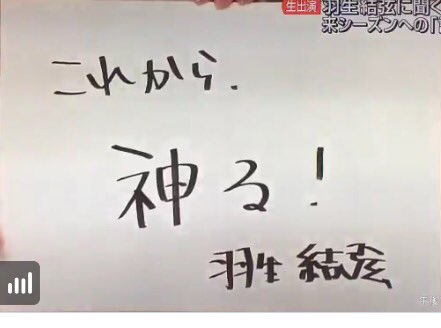 生出演
羽生結弦に聞く
来シーズンへの「
これから.
神る!
羽生 結弦